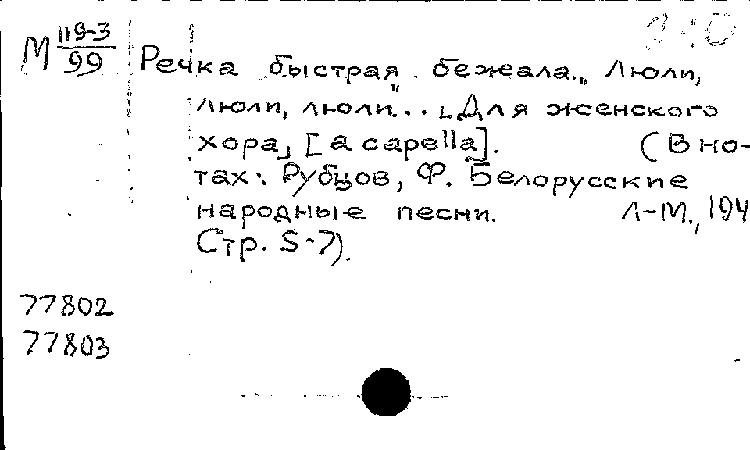 М 119-3/99
Речка быстрая бежала... Люли,
люли, люли... [Для женского
хора], [a capella]. (В но-
тах: Рубцов, Ф. Белорусские
народные песни. Л-М., 194
Стр. 5-7).
77802
77803